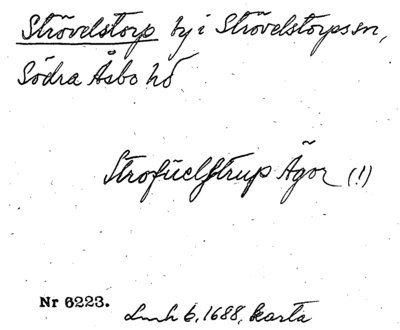 Strövelstorp by i Strövelstorps sn,
Södra Åsbo hd
Strofüelstrup Ägor (!)
Nr 6223.
Lmh 6, 1688, karta